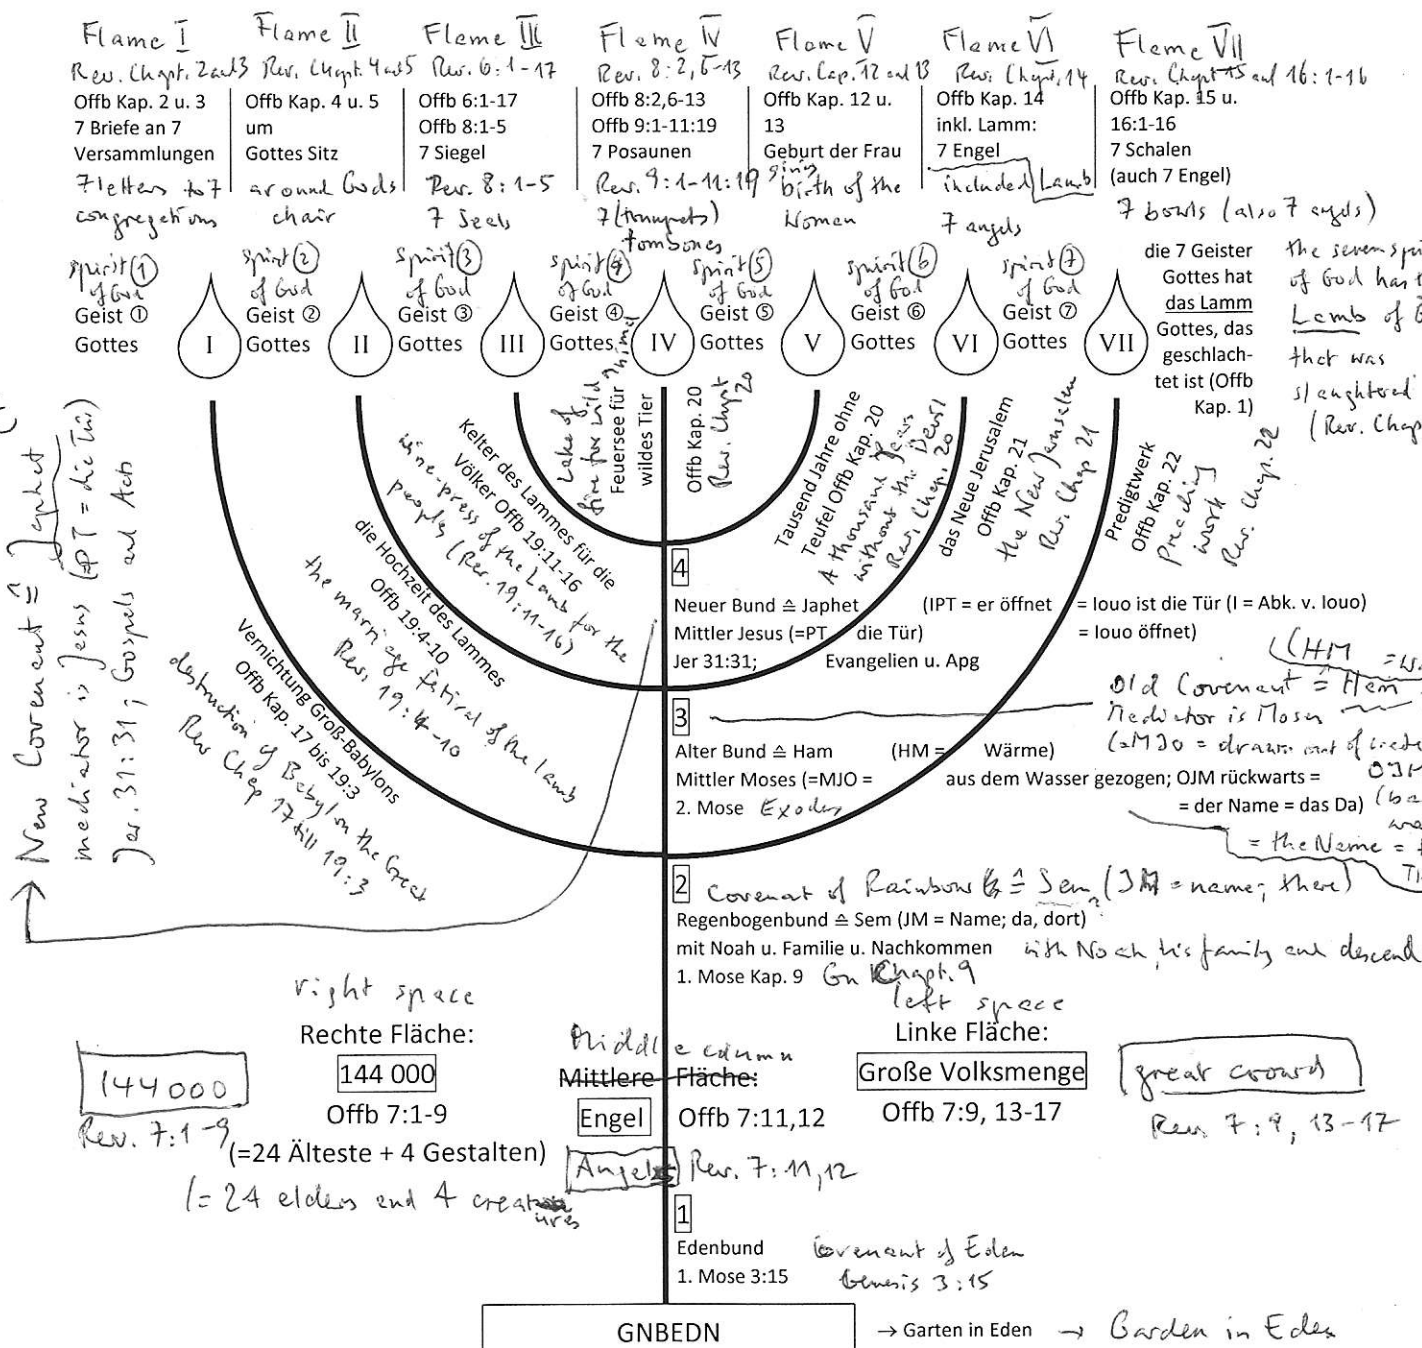 Flame I
Rev. Chapt. 2 and 3
Offb Kap. 2 u. 3
7 Briefe an 7
Versammlungen
7 letters to 7
congregations
Flame II
Rev. Chapt. 4 and 5
Offb Kap. 4 u. 5
um
Gottes Sitz
around Gods
chair
Flame III
Rev. 6:1-17
Offb 6:1-17
Offb 8:1-5
7 Siegel
Rev. 8:1-5
7 Seals
Flame IV
Rev. 8:2,6-13
Offb 8:2,6-13
Offb 9:1-11:19
7 Posaunen
Rev. 9:1-11:19
7 (trumpets)
tombones
Flame V
Rev. Cap. 12 and 13
Offb Kap. 12 u.
13
Geburt der Frau
giving
birth of the
Women
Flame VI
Rev. Chapt. 14
Offb Kap. 14
inkl. Lamm:
7 Engel
included Lamb
7 angels
Flame VII
Rev. Chapt 15 and 16:1-16
Offb Kap. 15 u.
16:1-16
7 Schalen
(auch 7 Engel)
7 bowls (also 7 angels)
spirit ①
of God
Geist ①
Gottes
I
spirit ②
of God
Geist ②
Gottes
II
spirit ③
of God
Geist ③
Gottes
III
spirit ④
of God
Geist ④
Gottes
IV
spirit ⑤
of God
Geist ⑤
Gottes
V
spirit ⑥
of God
Geist ⑥
Gottes
VI
spirit ⑦
of God
Geist ⑦
Gottes
VII
die 7 Geister
Gottes hat
das Lamm
Gottes, das
geschlach-
tet ist (Offb
Kap. 1)
the seven
of God has
Lamb of
that was
slaughtered
(Rev. Chap
Vernichtung Groß-Babylons
Offb Kap. 17 bis 19:3
destruction of Babylon the Great
Rev Chap 17 till 19:3
die Hochzeit des Lammes
Offb 19:4-10
the marriage festival of the lamb
Rev. 19:4-10
Kelter des Lammes für die
Völker Offb 19:11-16
wine-press of the Lamb for the
people (Rev. 19:11-16)
Lake of
fire for wild
Feuersee für
wildes Tier
Offb Kap. 20
Rev. Chapt 20
Tausend Jahre ohne
Teufel Offb Kap. 20
A thousand years
without the Devil
Rev. Chap. 20
das Neue Jerusalem
Offb Kap. 21
the New Jerusalem
Rev. Chap 21
Predigtwerk
Offb Kap. 22
Preaching
work
Rev. Chap. 22
New Covenant ≙ Japhet
mediator is Jesus (=PT = die Tür)
Jer. 31:31; Gospels and Acts
4
Neuer Bund ≙ Japhet (IPT = er öffnet = Iouo ist die Tür (I = Abk. v. Iouo)
Mittler Jesus (=PT die Tür) = Iouo öffnet)
Jer 31:31; Evangelien u. Apg
(HM
Old Covenant ≙ Ham
Mediator is Moses
(=MJO = drawn out of
3
Alter Bund ≙ Ham (HM = Wärme)
Mittler Moses (=MJO = aus dem Wasser gezogen; OJM rückwarts =
2. Mose Exodus = der Name = das Da)
= the Name =
2
Covenant of Rainbow ≙ Sem (JM = name; there)
Regenbogenbund ≙ Sem (JM = Name; da, dort)
mit Noah u. Familie u. Nachkommen with Noah, his family and descend
1. Mose Kap. 9 Gn Chapt. 9
right space
Rechte Fläche:
144 000
144 000
Offb 7:1-9
Rev. 7:1-9
(=24 Älteste + 4 Gestalten)
(= 24 elders and 4 creatures
Middle column
Mittlere Fläche:
Engel Offb 7:11,12
Angels Rev. 7:11,12
left space
Linke Fläche:
Große Volksmenge
great crowd
Offb 7:9, 13-17
Rev. 7:9, 13-17
1
Edenbund Covenant of Eden
1. Mose 3:15 Genesis 3:15
GNBEDN → Garten in Eden → Garden in Eden